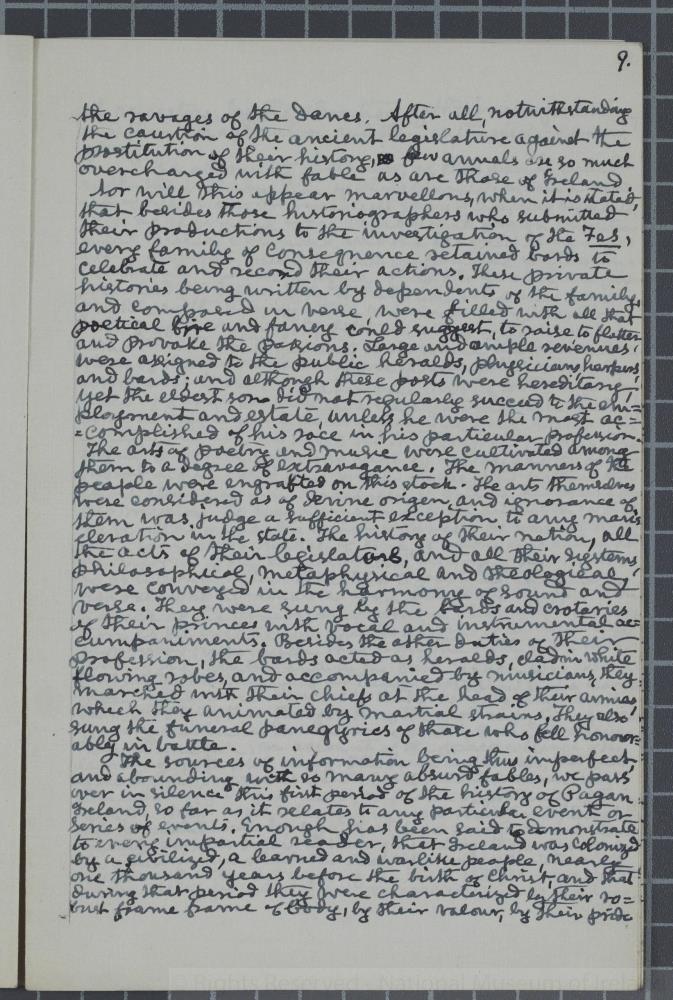 9.
the ravages of the Danes. After all, notwithstanding
the caution of the ancient legislature against the
prostitution of their history, few annals are so much
overcharged with fable as are those of Ireland.
Nor will this appear marvellous, when it is stated,
that besides those historiographers who submitted
their productions to the investigation of the Fes,
every family of consequence retained bards to
celebrate and record their actions. These private
histories being written by dependents of the family,
and composed in verse, were filled with all that
poetical fire and fancy could suggest, to raise to flatter
and provoke the passions. Large and ample revenues
were assigned to the public heralds, physicians harpers
and bards; and although these posts were hereditary,
yet the eldest son did not regularly succeed to the em=
ployment and estate, unless he were the most ac=
=complished of his race in his particular profession.
The arts of poetry and music were cultivated among
them to a degree of extravagance. The manners of the
people were engrafted on this stock. The arts themselves
were considered as of devine origen, and ignorance of
them was judge a sufficient exception to any man's
eleration in the state. The history of their nation, all
the acts of their legislators, and all their systems
philosophical, metaphysical and theological,
were conveyed in the harmony of sound and
verse. They were sung by the bards and croteries
of their princes with vocal and instrumental ac=
cumpaniments. Besides the other duties of their
profession, the bards acted as heralds, clad in white
flowing robes, and accompanied by musicians, they
marched with their chiefs at the head of their armies,
which they animated by martial strains, They also
sung the funeral panegyrics of those who fell honour=
ably in battle.
The sources of information being thus imperfect
and abounding with so many absurd fables, we pass
over in silence this first period of the history of Pagan
Ireland, so far as it relates to any particular event or
series of events. Enough has been said to demonstrate
to every impartial reader, that Ireland was colonized
by a civilized, a learned and warlike people, nearly
one thousand years before the birth of Christ, and that
during that period they were characterized by their ro=
bust frame frame of body, by their valour, by their
© Rights Reserved - National Museum of Irel